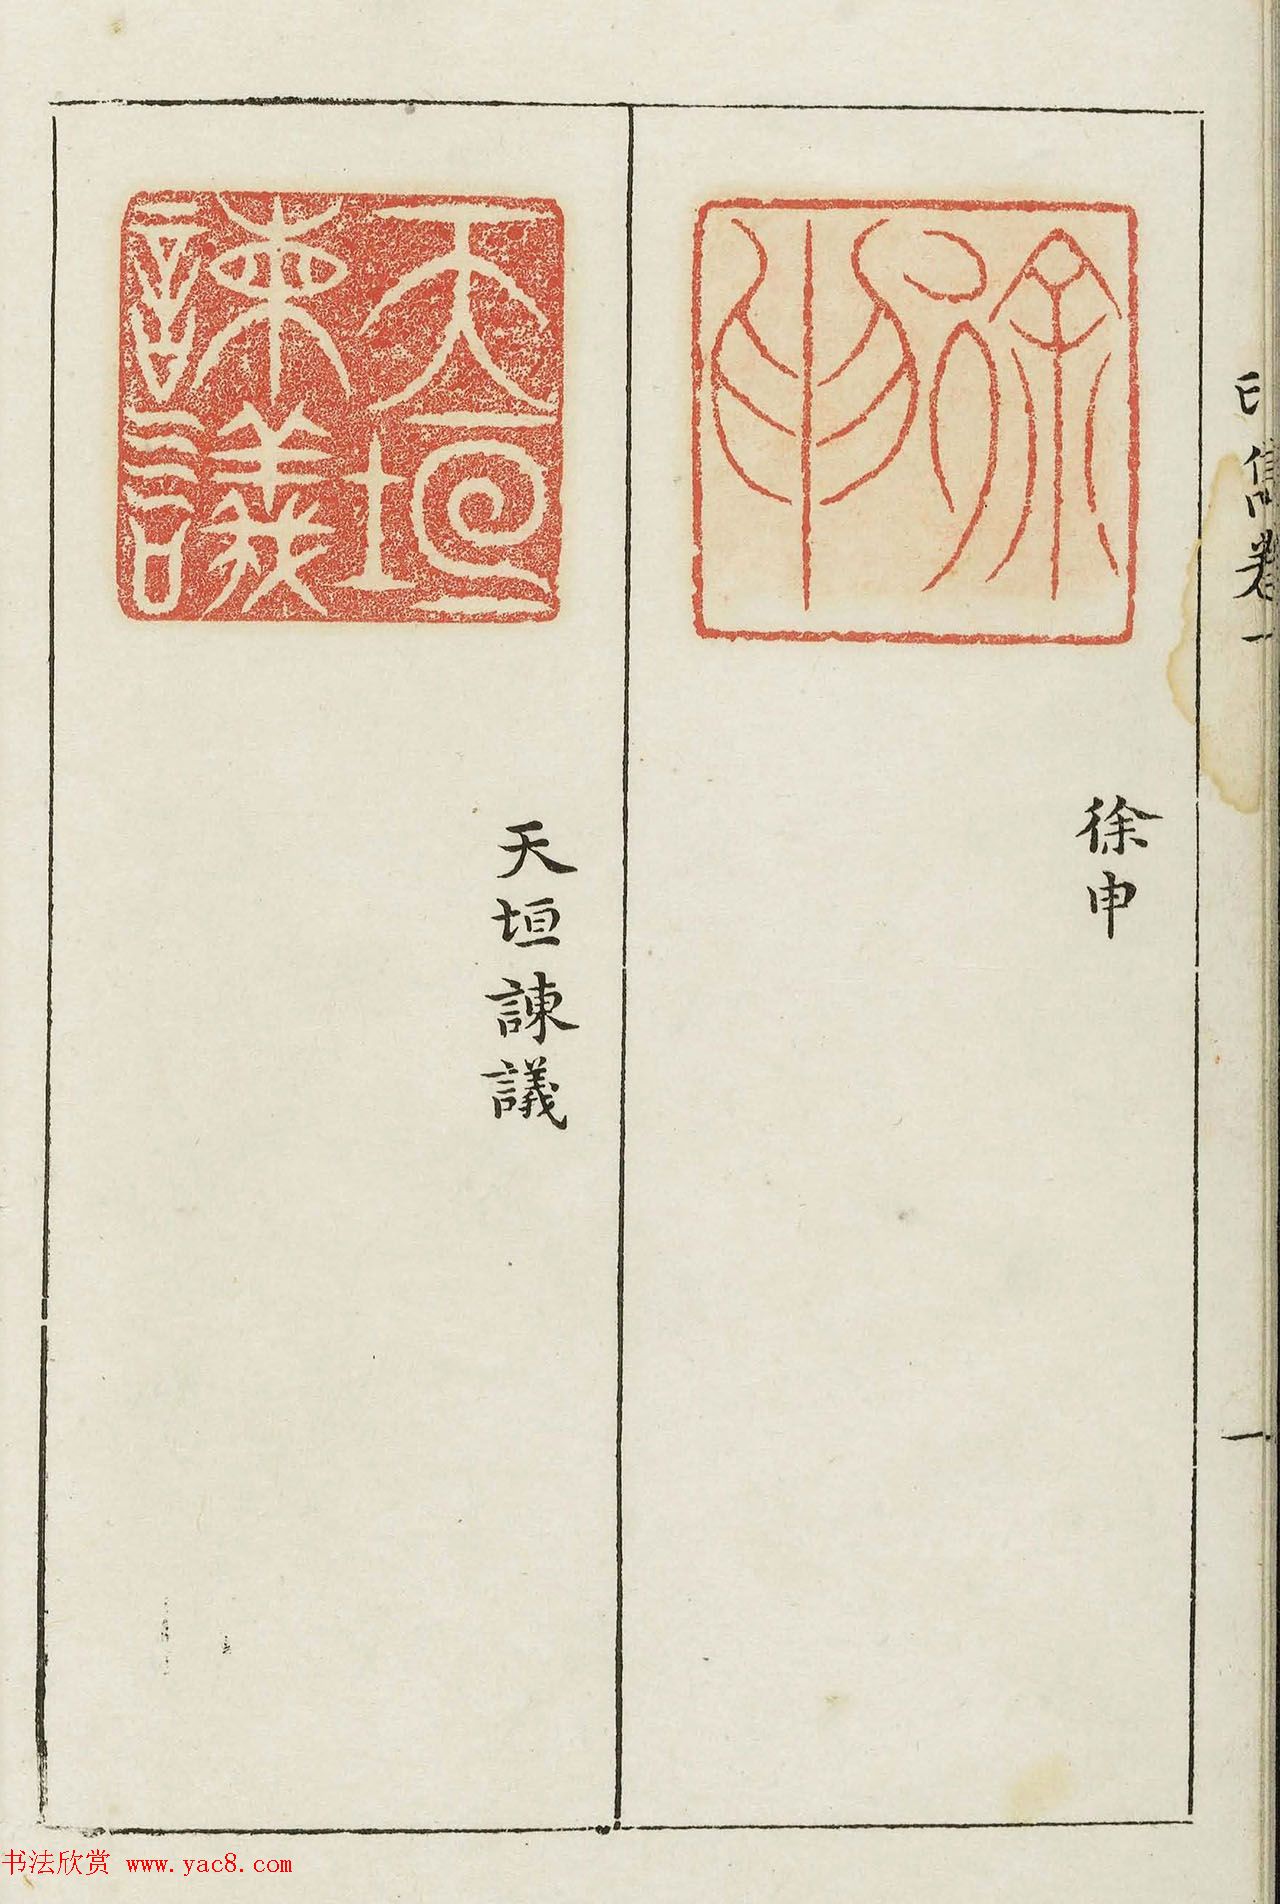 印雋卷一
一
徐申
徐申
天垣諫議
天垣諫議
书法欣赏 www.yac8.com